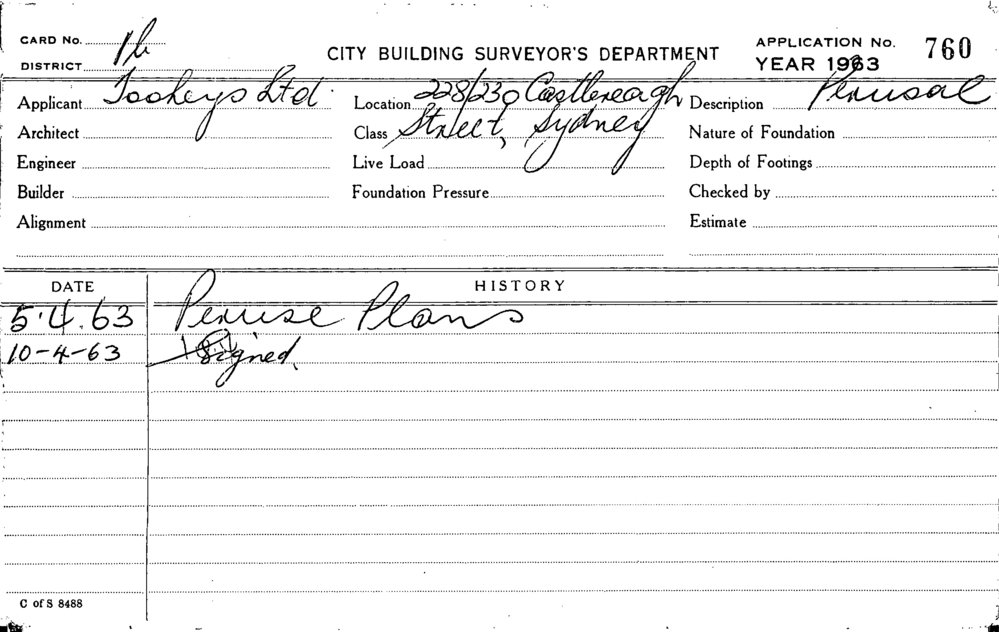 CARD No. 1b
DISTRICT
CITY BUILDING SURVEYOR'S DEPARTMENT
APPLICATION No. 760
YEAR 1963
Applicant Tooheys Ltd.
Location 228/230 Castlereagh
Description Perusal
Architect
Class Street, Sydney
Nature of Foundation
Engineer
Live Load
Depth of Footings
Builder
Foundation Pressure
Checked by
Alignment
Estimate
DATE
HISTORY
5.4.63 Peruse Plans
10-4-63 Signed.
C of S 8488